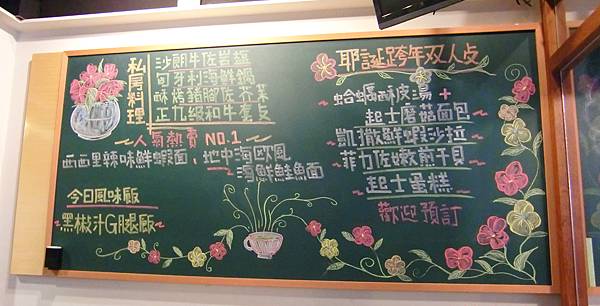 私房料理
沙朗牛佐岩鹽
匈牙利海鮮鍋
酥烤豬腳佐芥菜
正九級和牛套皮
人氣熱賣 NO.1
西西里辣味鮮蝦麵、地中海歐風
海鮮鮭魚面
今日風味飯
黑椒汁G腿飯
耶誕跨年双人歺
蛤蠣酥皮湯+
起士磨菇面包
凱撒鮮蝦沙拉
菲力佐嫩煎干貝
起士蛋糕
歡迎預訂